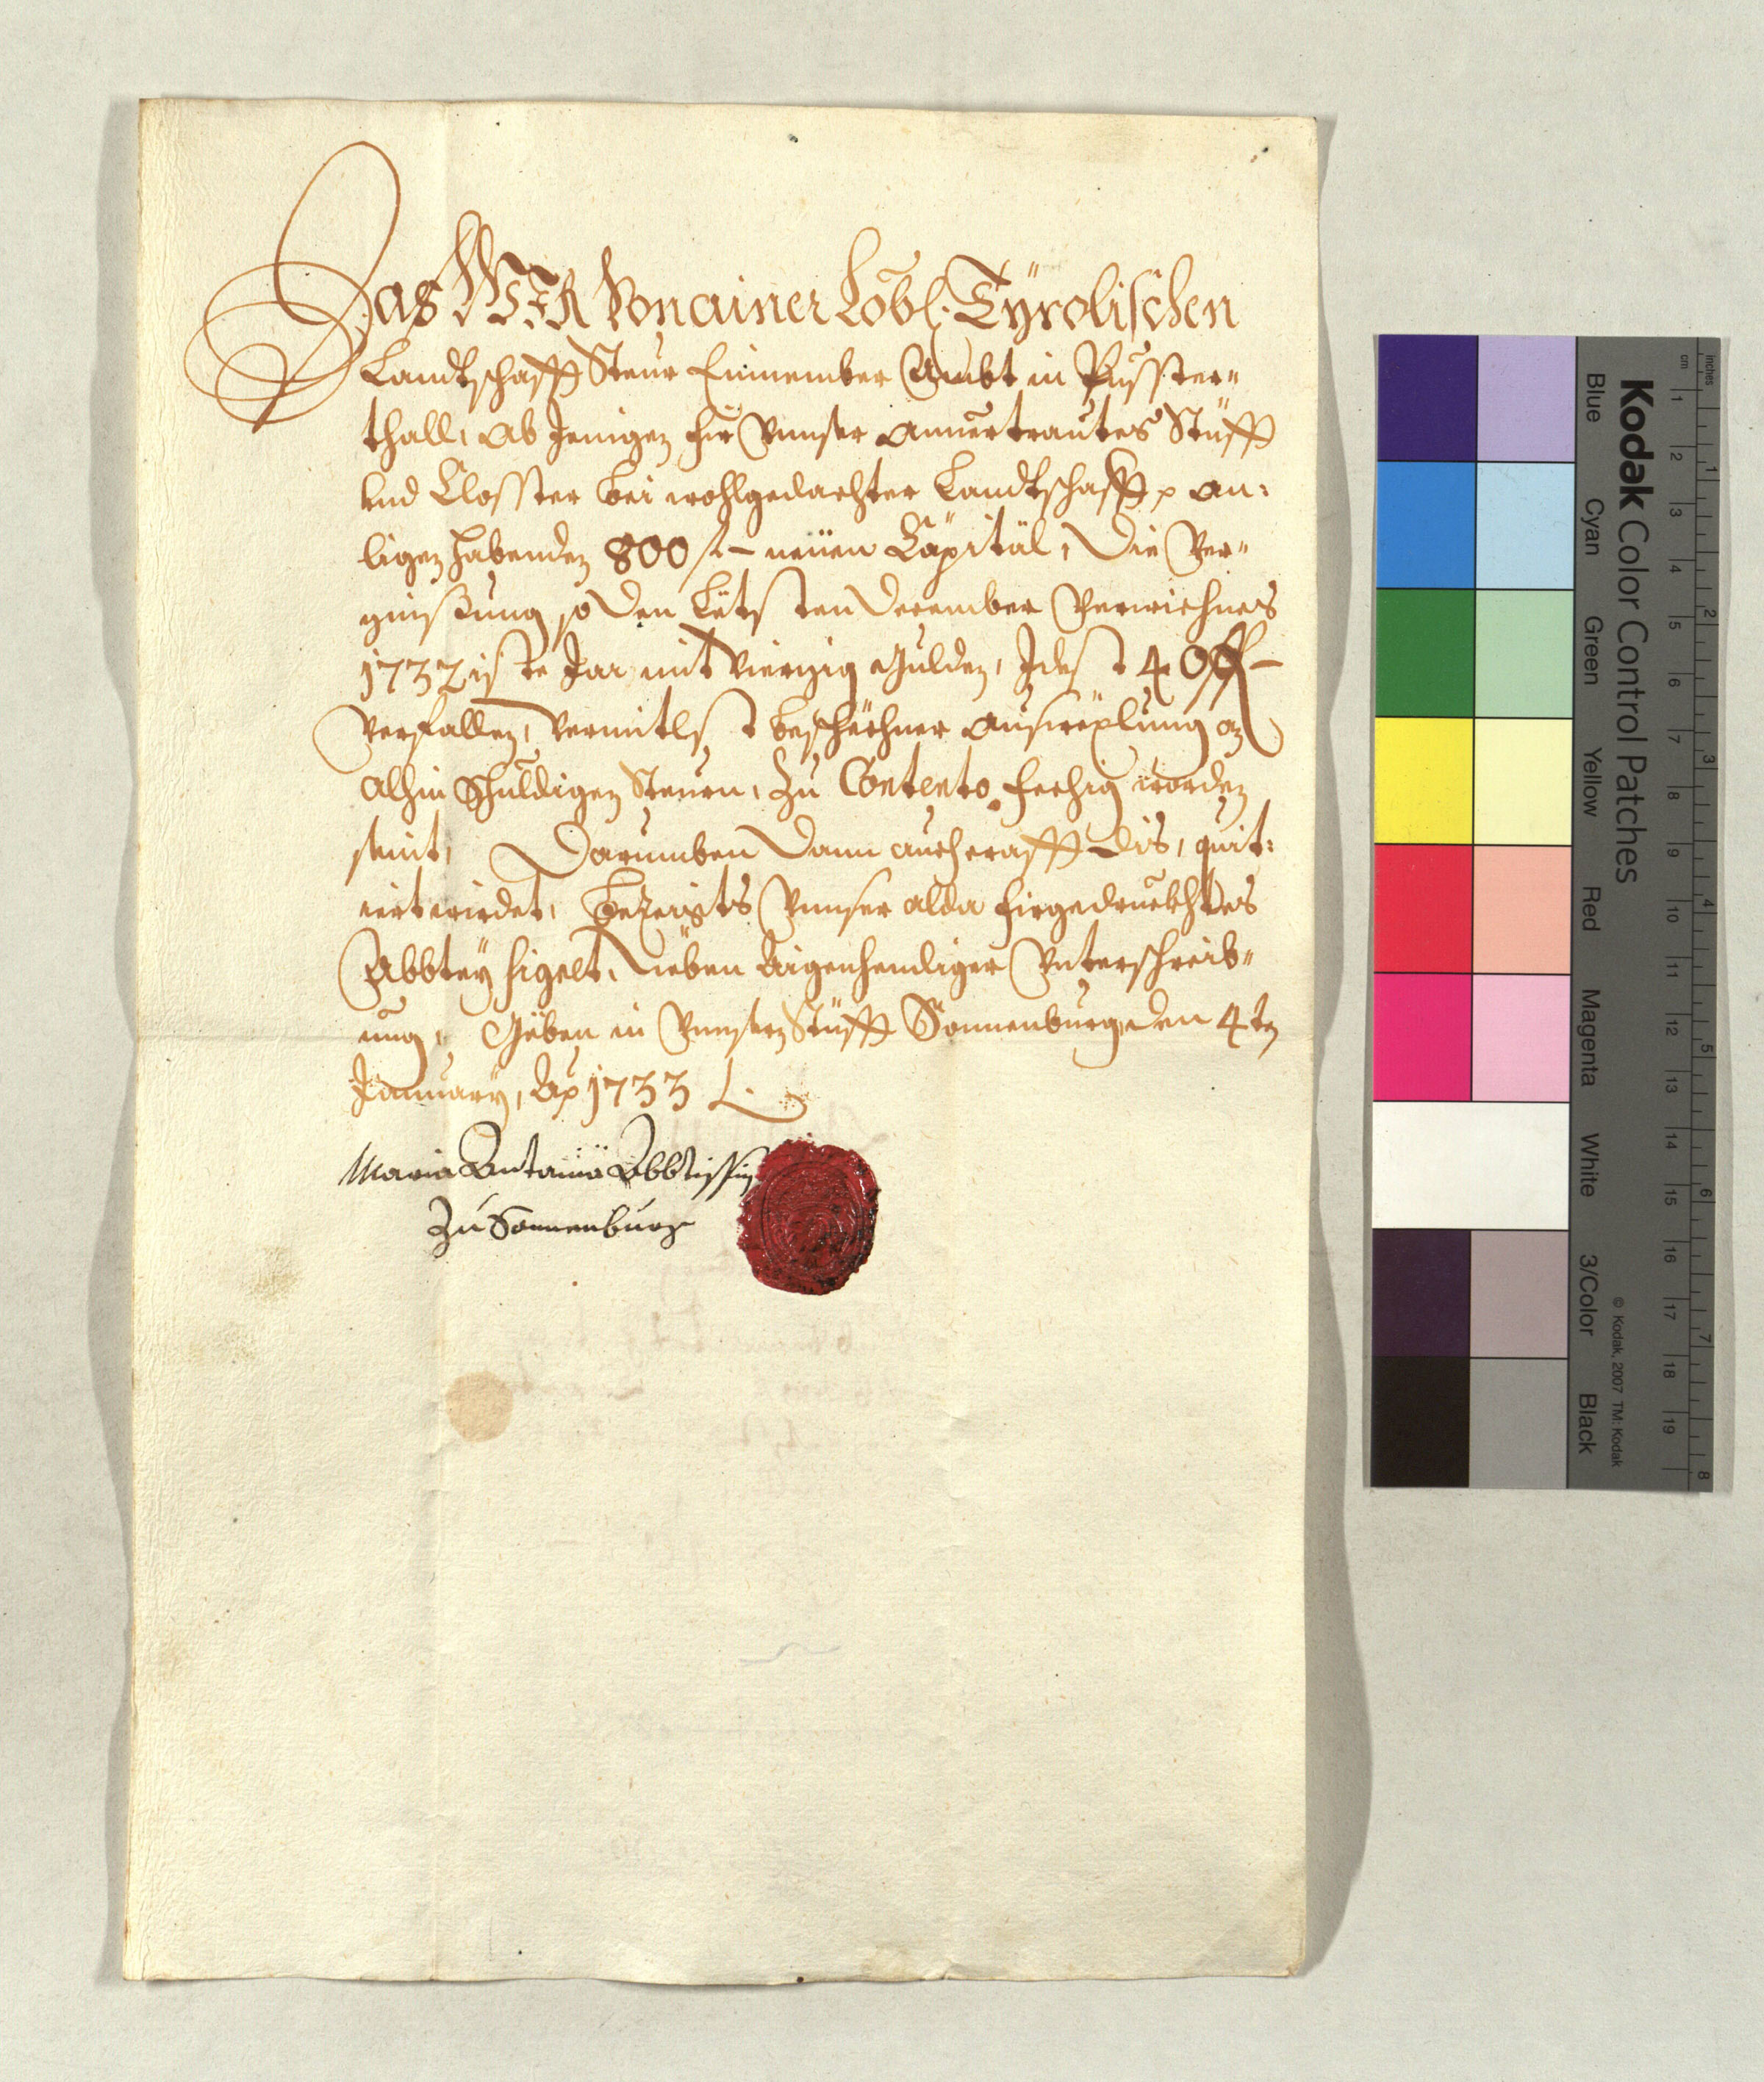 Das WIR von ainer Löbl: Tyrolischen
Landtschafft Steur Einnember Ambt in Pusster„
thall, ab Jenigen für Unnser anuertrautes Stüfft
und Closster bei wohlgedachter Landtschafft p an:
ligen habenden 800 f – neuen Capital, Die Ver„
zinßung so den Letsten December verwichnes
1732iste Jar mit vierzig Gulden, Idest 40 f –
verfallen, vermitlst beschechner aufwexlung an
alhin schuldigen Steurn, zu Contento fechig worden
seint, Darumben dann auch crafft dis, quit:
iert wirdet, Bezeigts Unnser alda firgedruckhtes
Abbtey Sigelt, neben aigenhendiger Unterschreib„
ung, Geben in Unnsern Stüfft Sonnenburg den 4ten
January, Ao 1733
Maria Antania Abbtissin
zu Sonnenburg
Kodak Color Control Patches
Blue Cyan Green Yellow Red Magenta White 3/Color Black
© Kodak, 2007 TM: Kodak
inches 1 2 3 4 5 6 7 8
cm 1 2 3 4 5 6 7 8 9 10 11 12 13 14 15 16 17 18 19